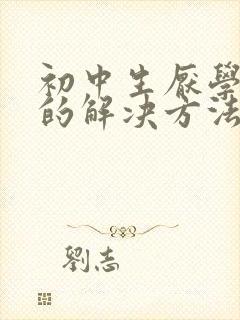 初中生厭學
的解決方法
劉志